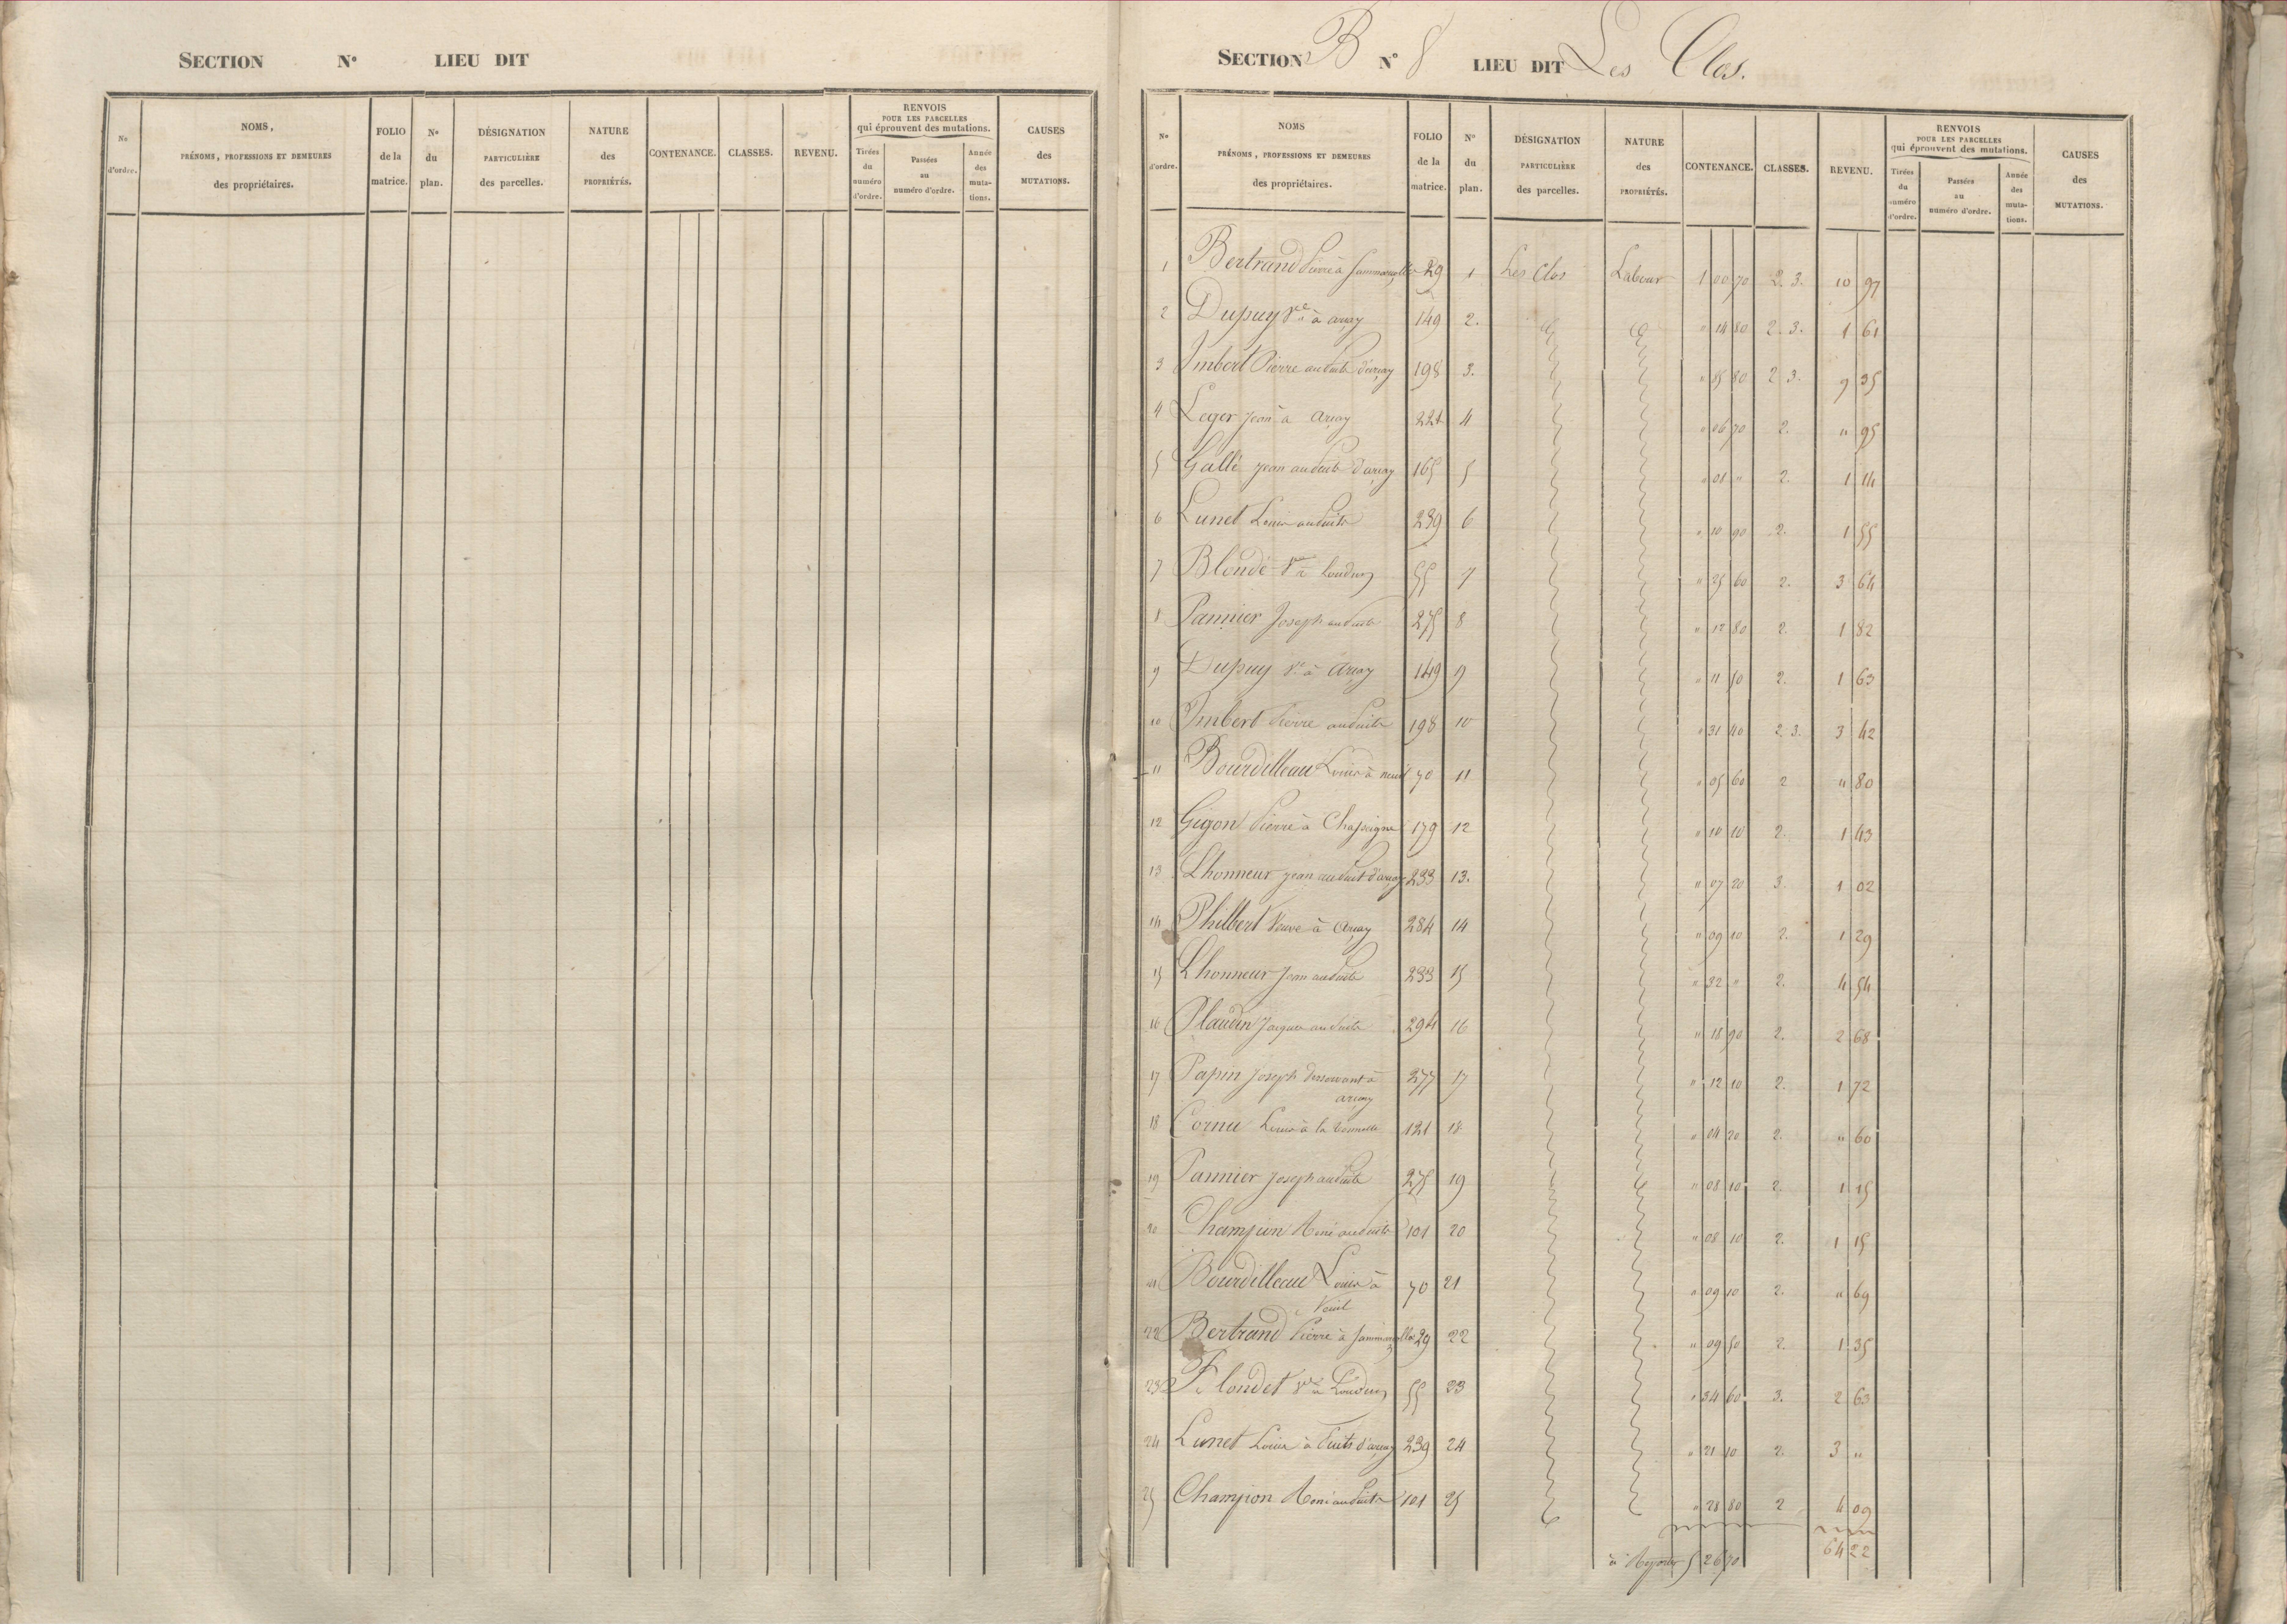 SECTION N° LIEU DIT
N° d'ordre.
NOMS, PRÉNOMS, PROFESSIONS ET DEMEURES des propriétaires.
FOLIO de la matrice.
N° du plan.
DÉSIGNATION PARTICULIÈRE des parcelles.
NATURE des PROPRIÉTÉS.
CONTENANCE.
CLASSES.
REVENU.
RENVOIS POUR LES PARCELLES qui éprouvent des mutations.
Tirées du numéro d'ordre.
Passées au numéro d'ordre.
Année des mutations.
CAUSES des MUTATIONS.
SECTION B N° 8 LIEU DIT Les Clos.
N° d'ordre.
NOMS PRÉNOMS, PROFESSIONS ET DEMEURES des propriétaires.
FOLIO de la matrice.
N° du plan.
DÉSIGNATION PARTICULIÈRE des parcelles.
NATURE des PROPRIÉTÉS.
CONTENANCE.
CLASSES.
REVENU.
RENVOIS POUR LES PARCELLES qui éprouvent des mutations.
Tirées du numéro d'ordre.
Passées au numéro d'ordre.
Année des mutations.
CAUSES des MUTATIONS.
1 Bertrand Pierre à Sammarçolles 29 1 Les Clos Labour 1 00 70 2. 3. 10 97
2 Dupuy Ve à arçay 149 2. " 14 80 2. 3. 1 61
3 Imbert Pierre au Puits d'arçay 198 3. " 85 80 2 3. 9 35
4 Leger Jean à Arçay 221 4 " 06 70 2. " 95
5 Gallé Jean au Puits d'arçay 165 5 " 01 " 2. 1 14
6 Lunet Louis au Puits 239 6 " 10 90 2. 1 55
7 Blondé Ve à Loudun 55 7 " 25 60 2. 3 64
8 Pannier Joseph au Puits 275 8 " 12 80 2. 1 82
9 Dupuy Ve à Arçay 149 9 " 11 50 2. 1 63
10 Imbert Pierre au Puits 198 10 " 31 40 2 3. 3 42
11 Bourdilleau Louis à neuil 70 11 " 05 60 2 " 80
12 Gigon Pierre à Chasseigne 179 12 " 10 10 2. 1 43
13 Lhonneur Jean au Puit d'arçay 233 13. " 07 20 3. 1 02
14 Philbert Veuve à Arçay 284 14 " 09 10 2. 1 29
15 Lhonneur Jean au Puits 233 15 " 32 " 2. 4 54
16 Plaudin Jacques au Puits 294 16 " 18 90 2. 2 68
17 Papin Joseph desservant à arçay 277 17 " 12 10 2. 1 72
18 Cornu Louis à la 121 18 " 04 20 2. " 60
19 Pannier Joseph au Puits 275 19 " 08 10 2. 1 15
20 Champion René au Puits 101 20 " 08 10 2. 1 15
21 Bourdilleau Louis à Neuil 70 21 " 09 10 2. " 69
22 Bertrand Pierre à Sammarçolles 29 22 " 09 50 2. 1 35
23 Blondet Ve à Loudun 55 23 " 34 60 3. 2 63
24 Lunet Louis à Puits d'arçay 239 24 " 21 10 2. 3 "
25 Champion René au Puits 101 25 " 28 80 2 4 09
à Reporter 5 26 70 64 22